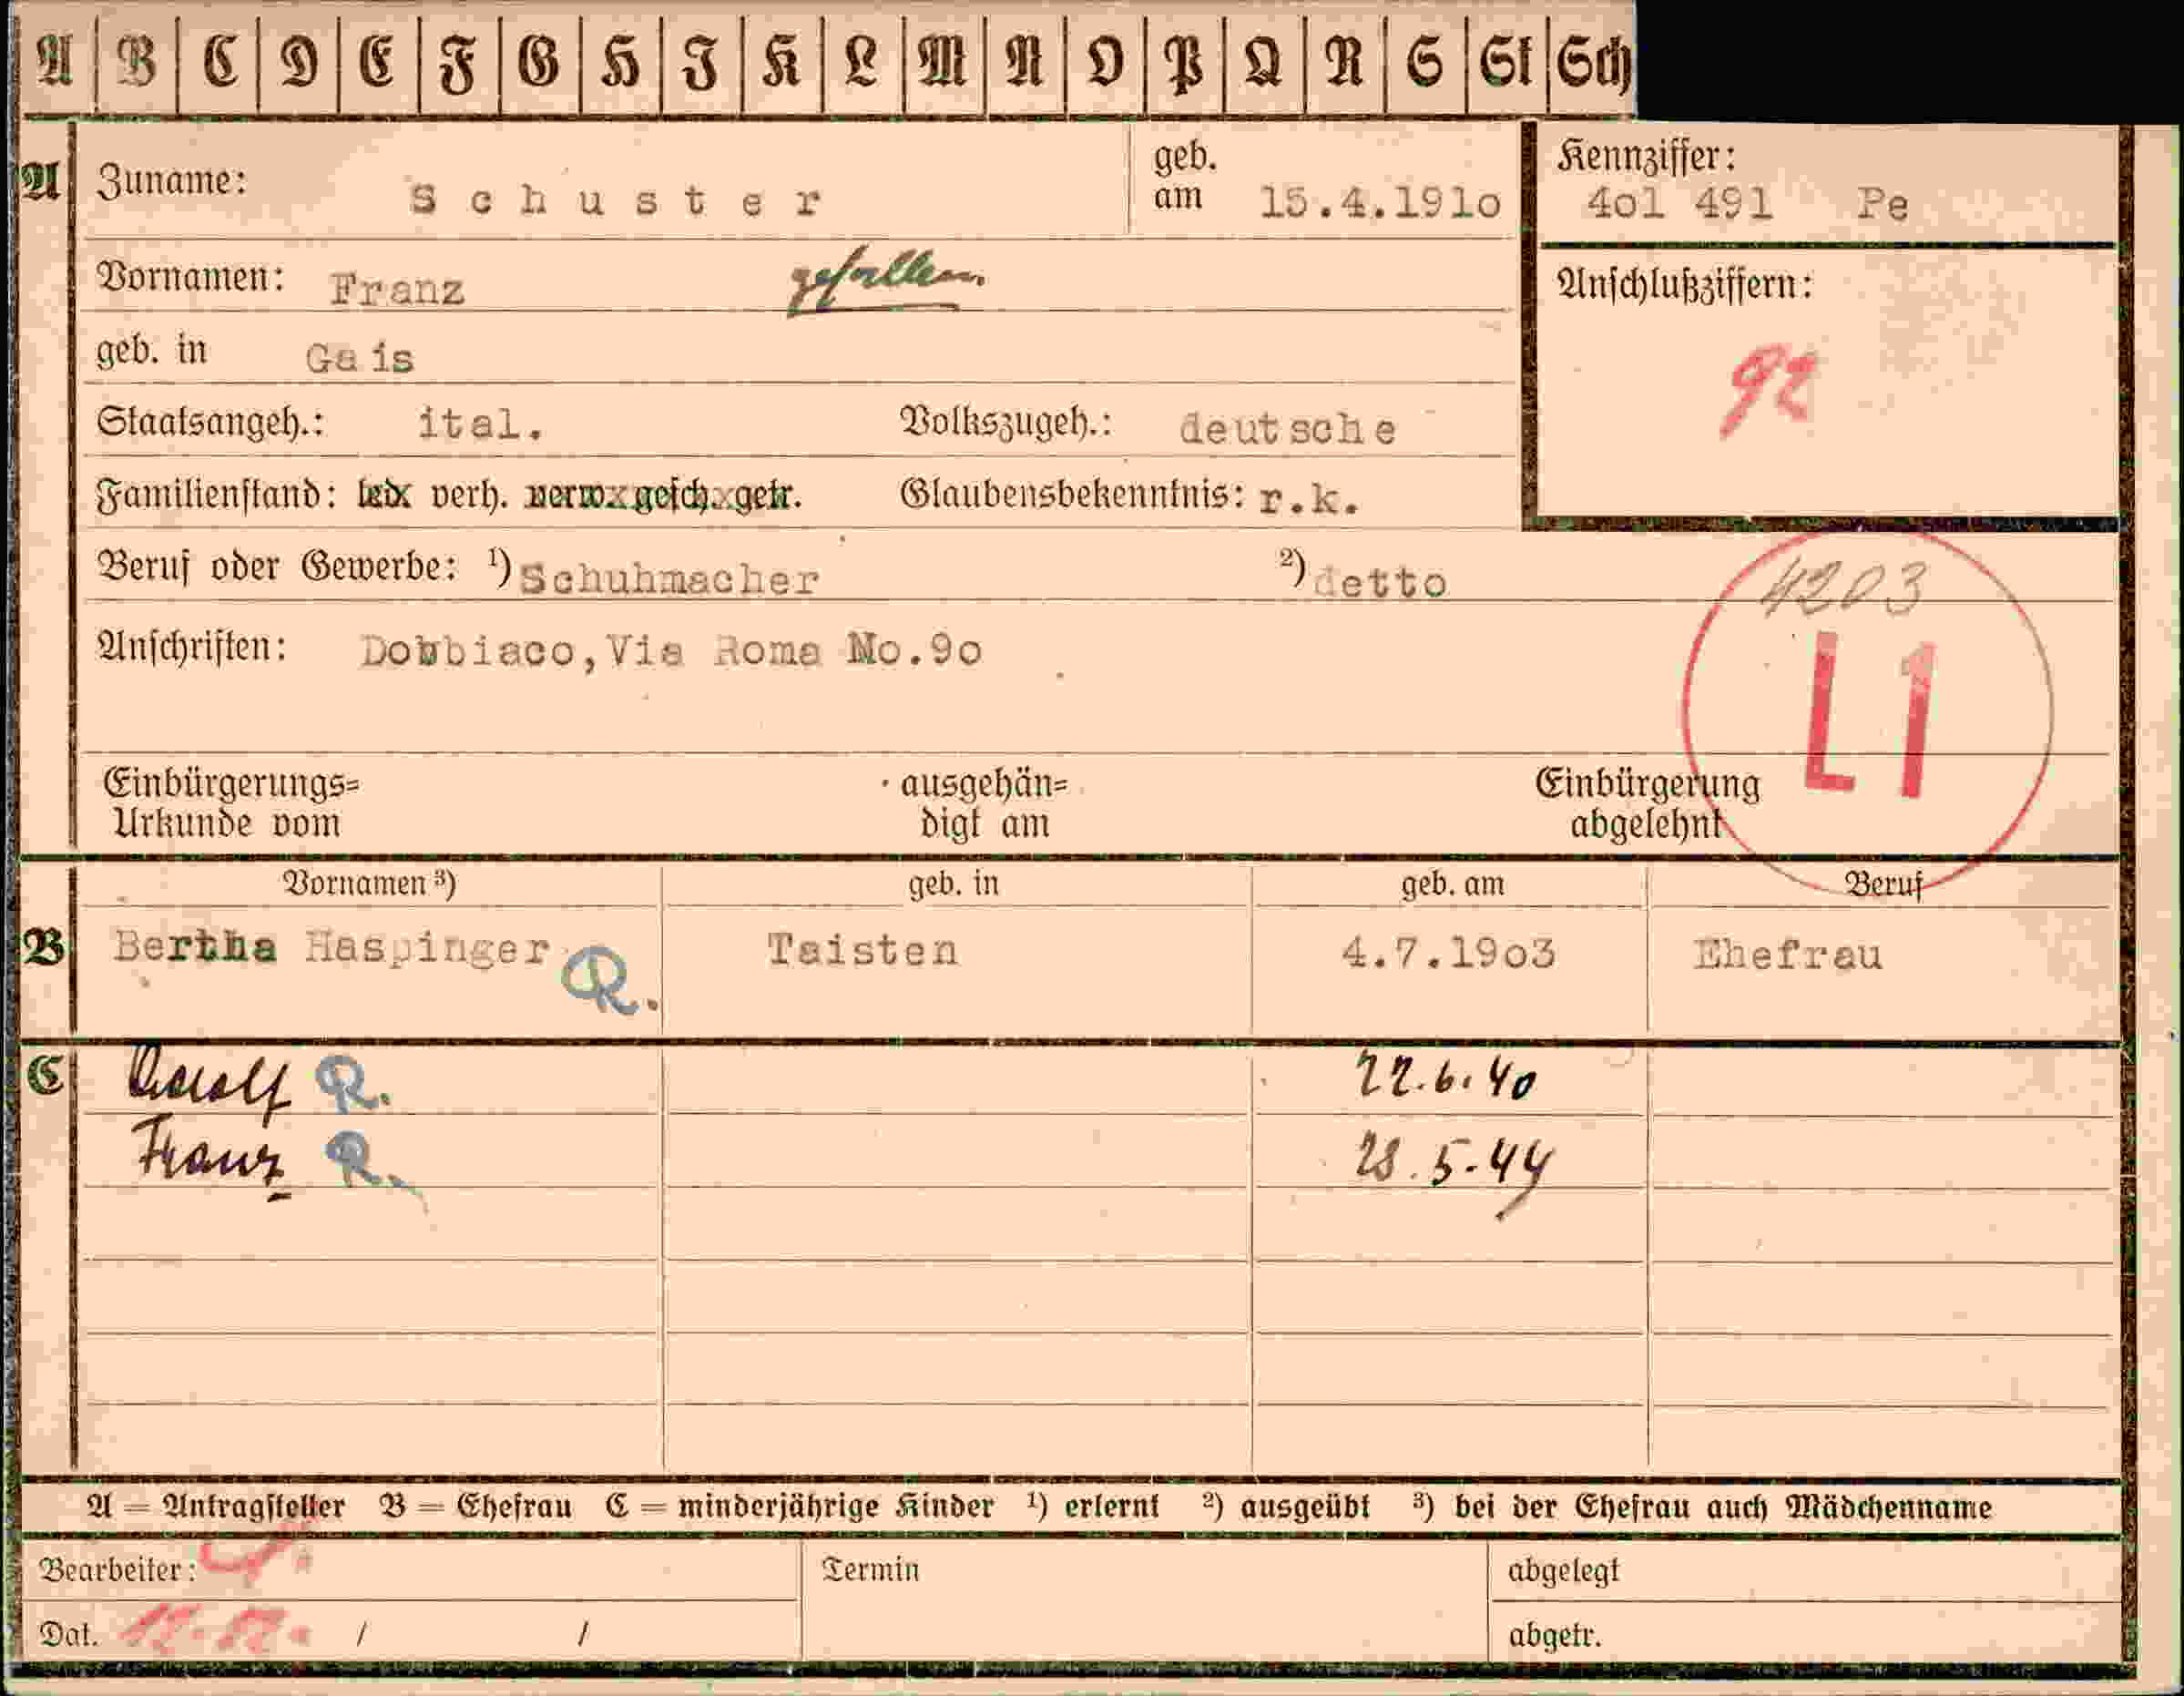 A B C D E F G H I K L M N O P Q R S St Sch
A Zuname: Schuster geb. am 15.4.191o
Kennziffer: 4o1 491 Pe
Vornamen: Franz gefallen.
Anschlußziffern:
92
geb. in Gais
Staatsangeh.: ital. Volkszugeh.: deutsche
Familienstand: led. verh. verw. gesch. getr. Glaubensbekenntnis: r.k.
Beruf oder Gewerbe: ¹) Schuhmacher ²) detto
4203
Anschriften: Dobbiaco, Via Roma No.9o
L1
Einbürgerungs= ausgehän= Einbürgerung
Urkunde vom digt am abgelehnt
Vornamen ³) geb. in geb. am Beruf
B Bertha Haspinger R. Taisten 4.7.19o3 Ehefrau
C Adolf R. 22.6.40
Franz R. 28.5.44
A = Antragsteller B = Ehefrau C = minderjährige Kinder ¹) erlernt ²) ausgeübt ³) bei der Ehefrau auch Mädchenname
Bearbeiter: Termin abgelegt
Dat. / / abgetr.